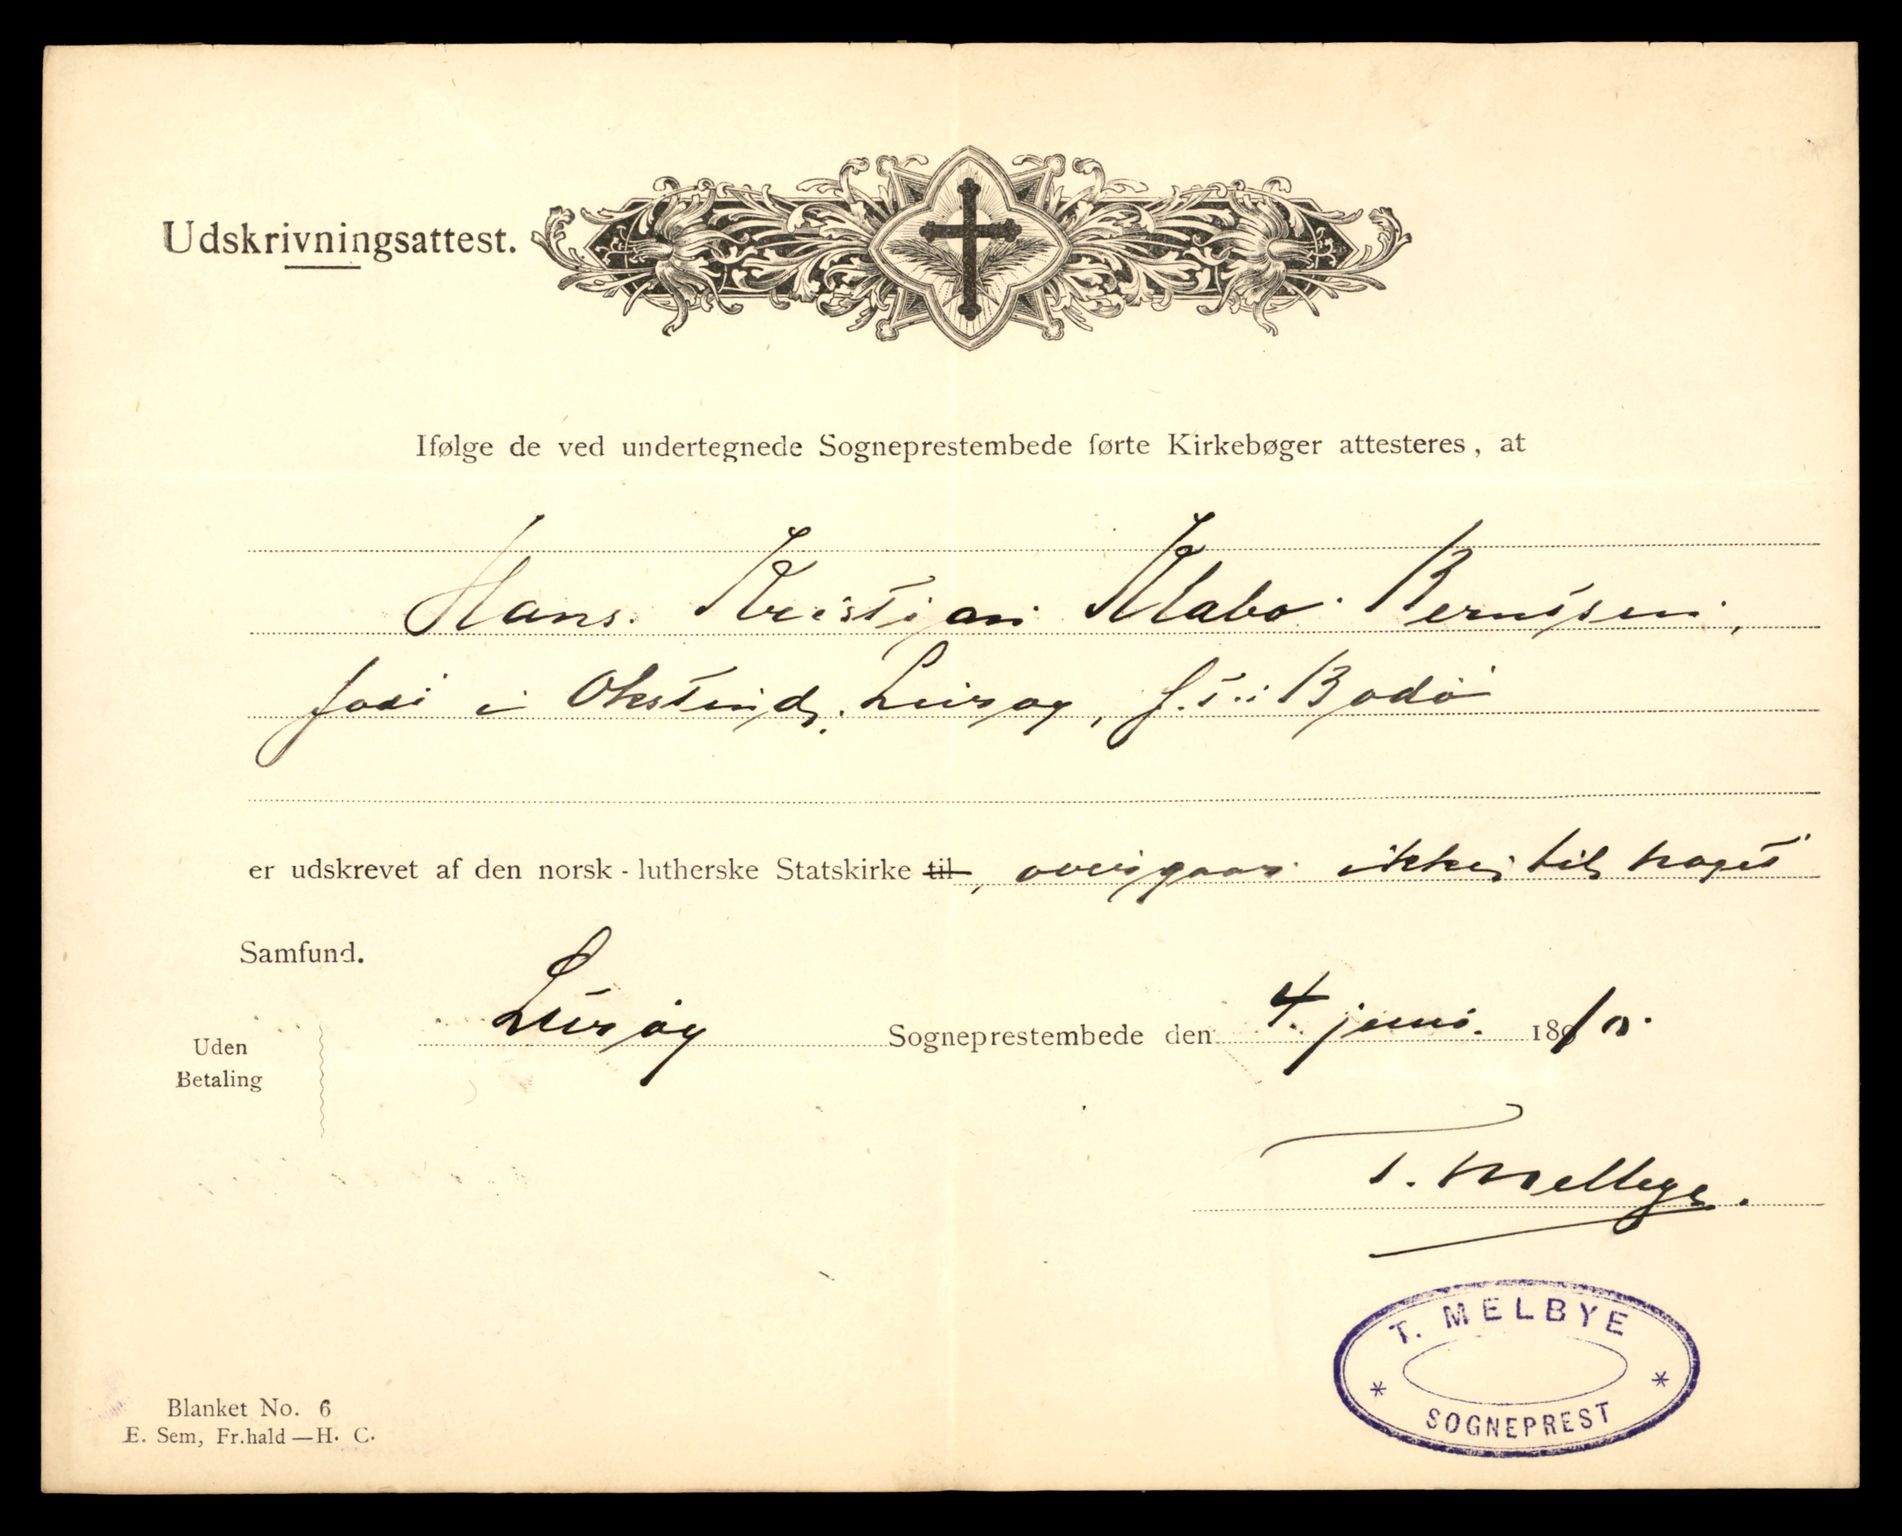 Udskrivningsattest.
Ifølge de ved undertegnede Sogneprestembede førte Kirkebøger attesteres, at
Hans Kristian Klabo Berntsen,
født i Okstind, Lurøy, f. t. i Bodø
er udskrevet af den norsk-lutherske Statskirke til, overgaar ikke til noget
Samfund.
Lurøy Sogneprestembede den 4. juni 1810.
Uden
Betaling
T. Melbye.
T. MELBYE
* *
SOGNEPREST
Blanket No. 6
E. Sem, Fr.hald—H. C.